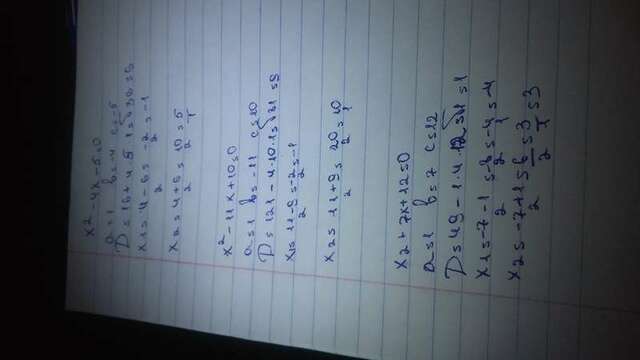 x² - 4x - 5 = 0
a = 1 b = -4 c = -5
D = 16 + 4 · 5 · 1 = √36 = 6
x1 = 4 - 6/2 = -2/2 = -1
x2 = 4 + 6/2 = 10/2 = 5/1
x² - 11x + 10 = 0
a = 1 b = -11 c = 10
D = 121 - 4 · 10 · 1 = √81 = 9
x1 = 11 - 9/2 = -2/2 = -1
x2 = 11 + 9/2 = 20/2 = 10/1
x2 + 7x + 12 = 0
a = 1 b = 7 c = 12
D = 49 - 1 · 4 · 12 = √1 = 1
x1 = -7 - 1/2 = -8/2 = -4/1 = -4
x2 = -7 + 1/2 = 6/2 = 3/1 = 3